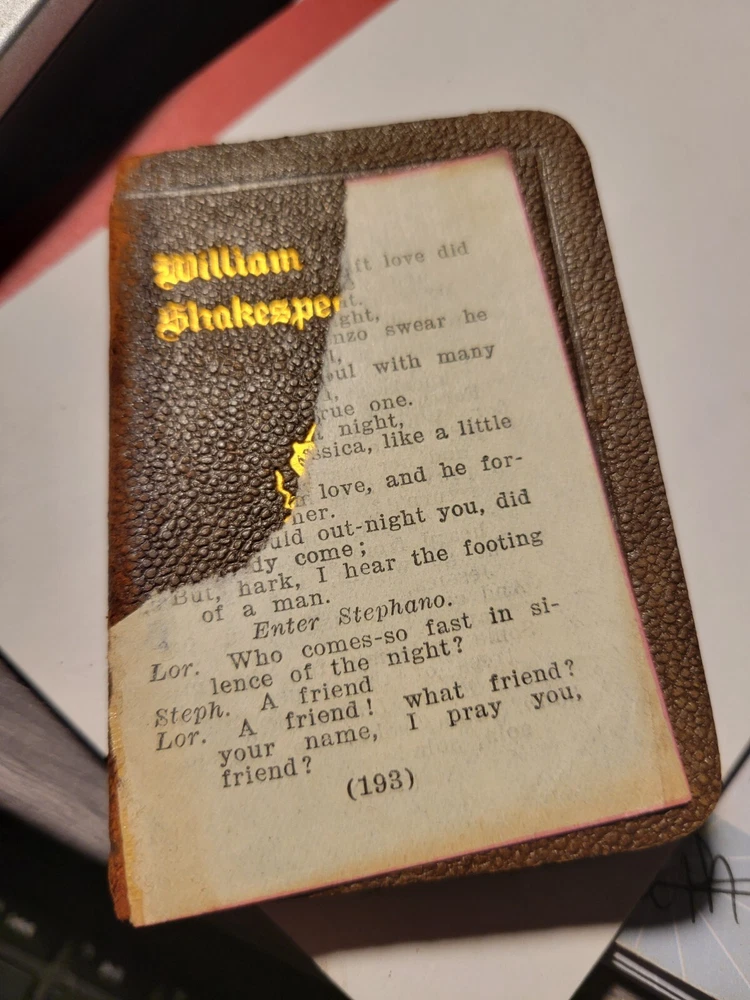 William
Shakespe
ft love did
t.
ght,
nzo swear he
l,
oul with many
,
rue one.
night,
ssica, like a little
love, and he for-
her.
uld out-night you, did
dy come;
But, hark, I hear the footing
of a man.
Enter Stephano.
Lor. Who comes-so fast in si-
lence of the night?
Steph. A friend
Lor. A friend! what friend?
your name, I pray you,
friend?
(193)